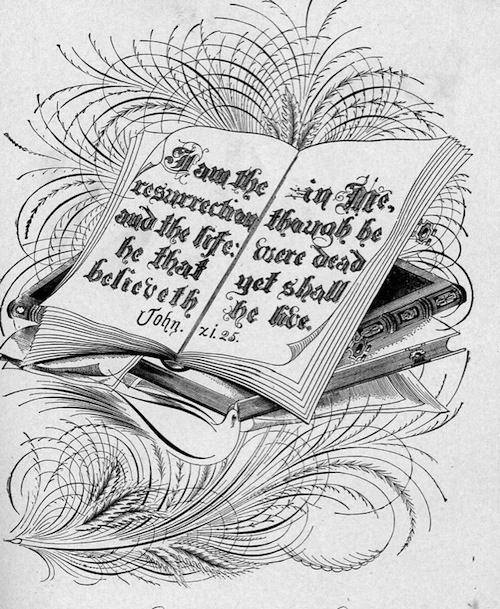 I am the
resurrection
and the life:
he that
believeth
John.
in Me,
though he
were dead
yet shall
he live.
xi. 25.